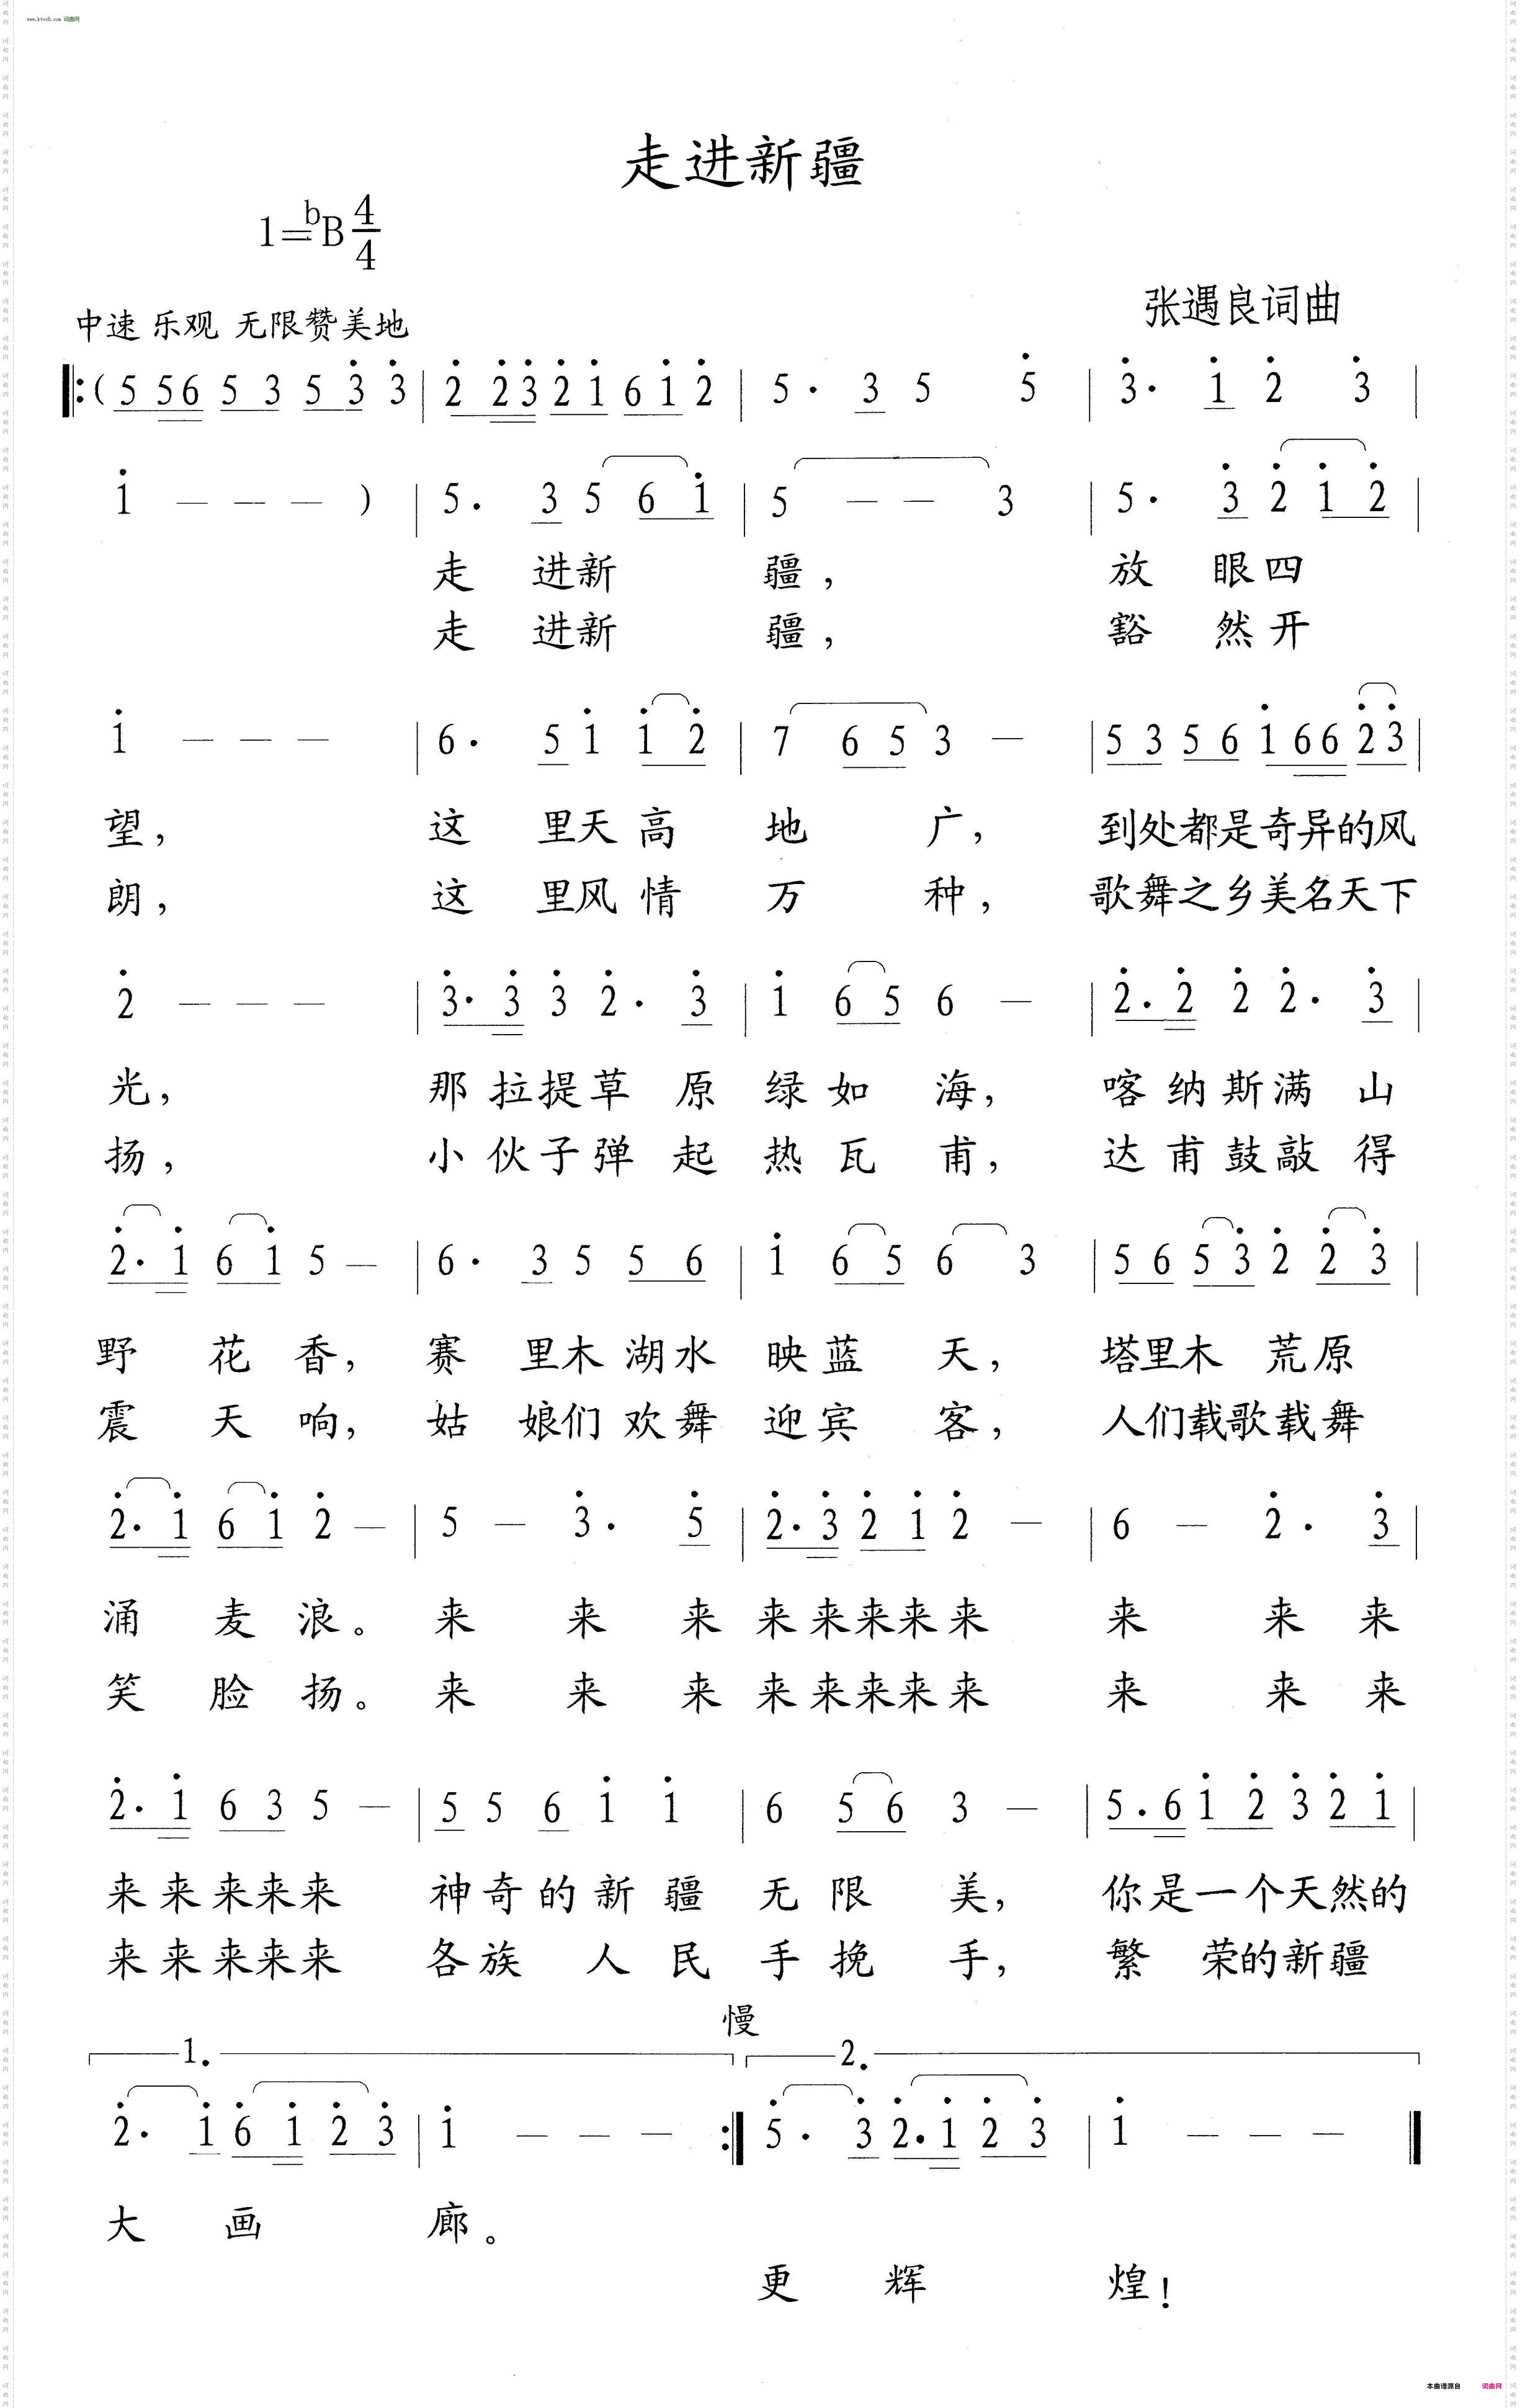 www.ktvc8.com 词曲网
走进新疆
1=bB 4/4
张遇良词曲
中速 乐观 无限赞美地
‖:(5 56 5 3 5 3̇ 3̇ | 2̇ 2̇3̇ 2̇ 1̇ 6 1̇ 2̇ | 5· 3 5 5̇ | 3̇· 1̇ 2̇ 3̇ |
1̇ — — — ) | 5· 3 5 6 1̇ | 5 — — 3 | 5· 3̇ 2̇ 1̇ 2̇ |
走 进新 疆, 放 眼四
走 进新 疆, 豁 然开
1̇ — — — | 6· 5 1̇ 1̇ 2̇ | 7 6 5 3 — | 5 3 5 6 1̇ 66 2̇ 3̇ |
望, 这 里天 高 地 广, 到处都是奇异的风
朗, 这 里风 情 万 种, 歌舞之乡美名天下
2̇ — — — | 3̇· 3̇ 3̇ 2̇· 3̇ | 1̇ 6 5 6 — | 2̇· 2̇ 2̇ 2̇· 3̇ |
光, 那 拉提草 原 绿 如 海, 喀 纳 斯 满 山
扬, 小 伙子弹 起 热 瓦 甫, 达 甫 鼓 敲 得
2̇· 1̇ 6 1̇ 5 — | 6· 3 5 5 6 | 1̇ 6 5 6 3 | 5 6 5 3̇ 2̇ 2̇ 3̇ |
野 花 香, 赛 里木 湖水 映 蓝 天, 塔里木 荒原
震 天 响, 姑 娘们 欢舞 迎 宾 客, 人们载歌载舞
2̇· 1̇ 6 1̇ 2̇ — | 5 — 3̇· 5̇ | 2̇· 3̇ 2̇ 1̇ 2̇ — | 6 — 2̇· 3̇ |
涌 麦 浪。 来 来 来 来来来来来 来 来 来
笑 脸 扬。 来 来 来 来来来来来 来 来 来
2̇· 1̇ 6 3 5 — | 5 5 6 1̇ 1̇ | 6 5 6 3 — | 5· 6 1̇ 2̇ 3̇ 2̇ 1̇ |
来来来来来 神奇的 新 疆 无 限 美, 你是一个天然的
来来来来来 各族 人 民 手 挽 手, 繁 荣的新疆
慢
1. 2.
2̇· 1̇ 6̇ 1̇ 2̇ 3̇ | 1̇ — — — :‖ 5̇· 3̇ 2̇· 1̇ 2̇ 3̇ | 1̇ — — — ‖
大 画 廊。
更 辉 煌!
本曲谱源自 词曲网